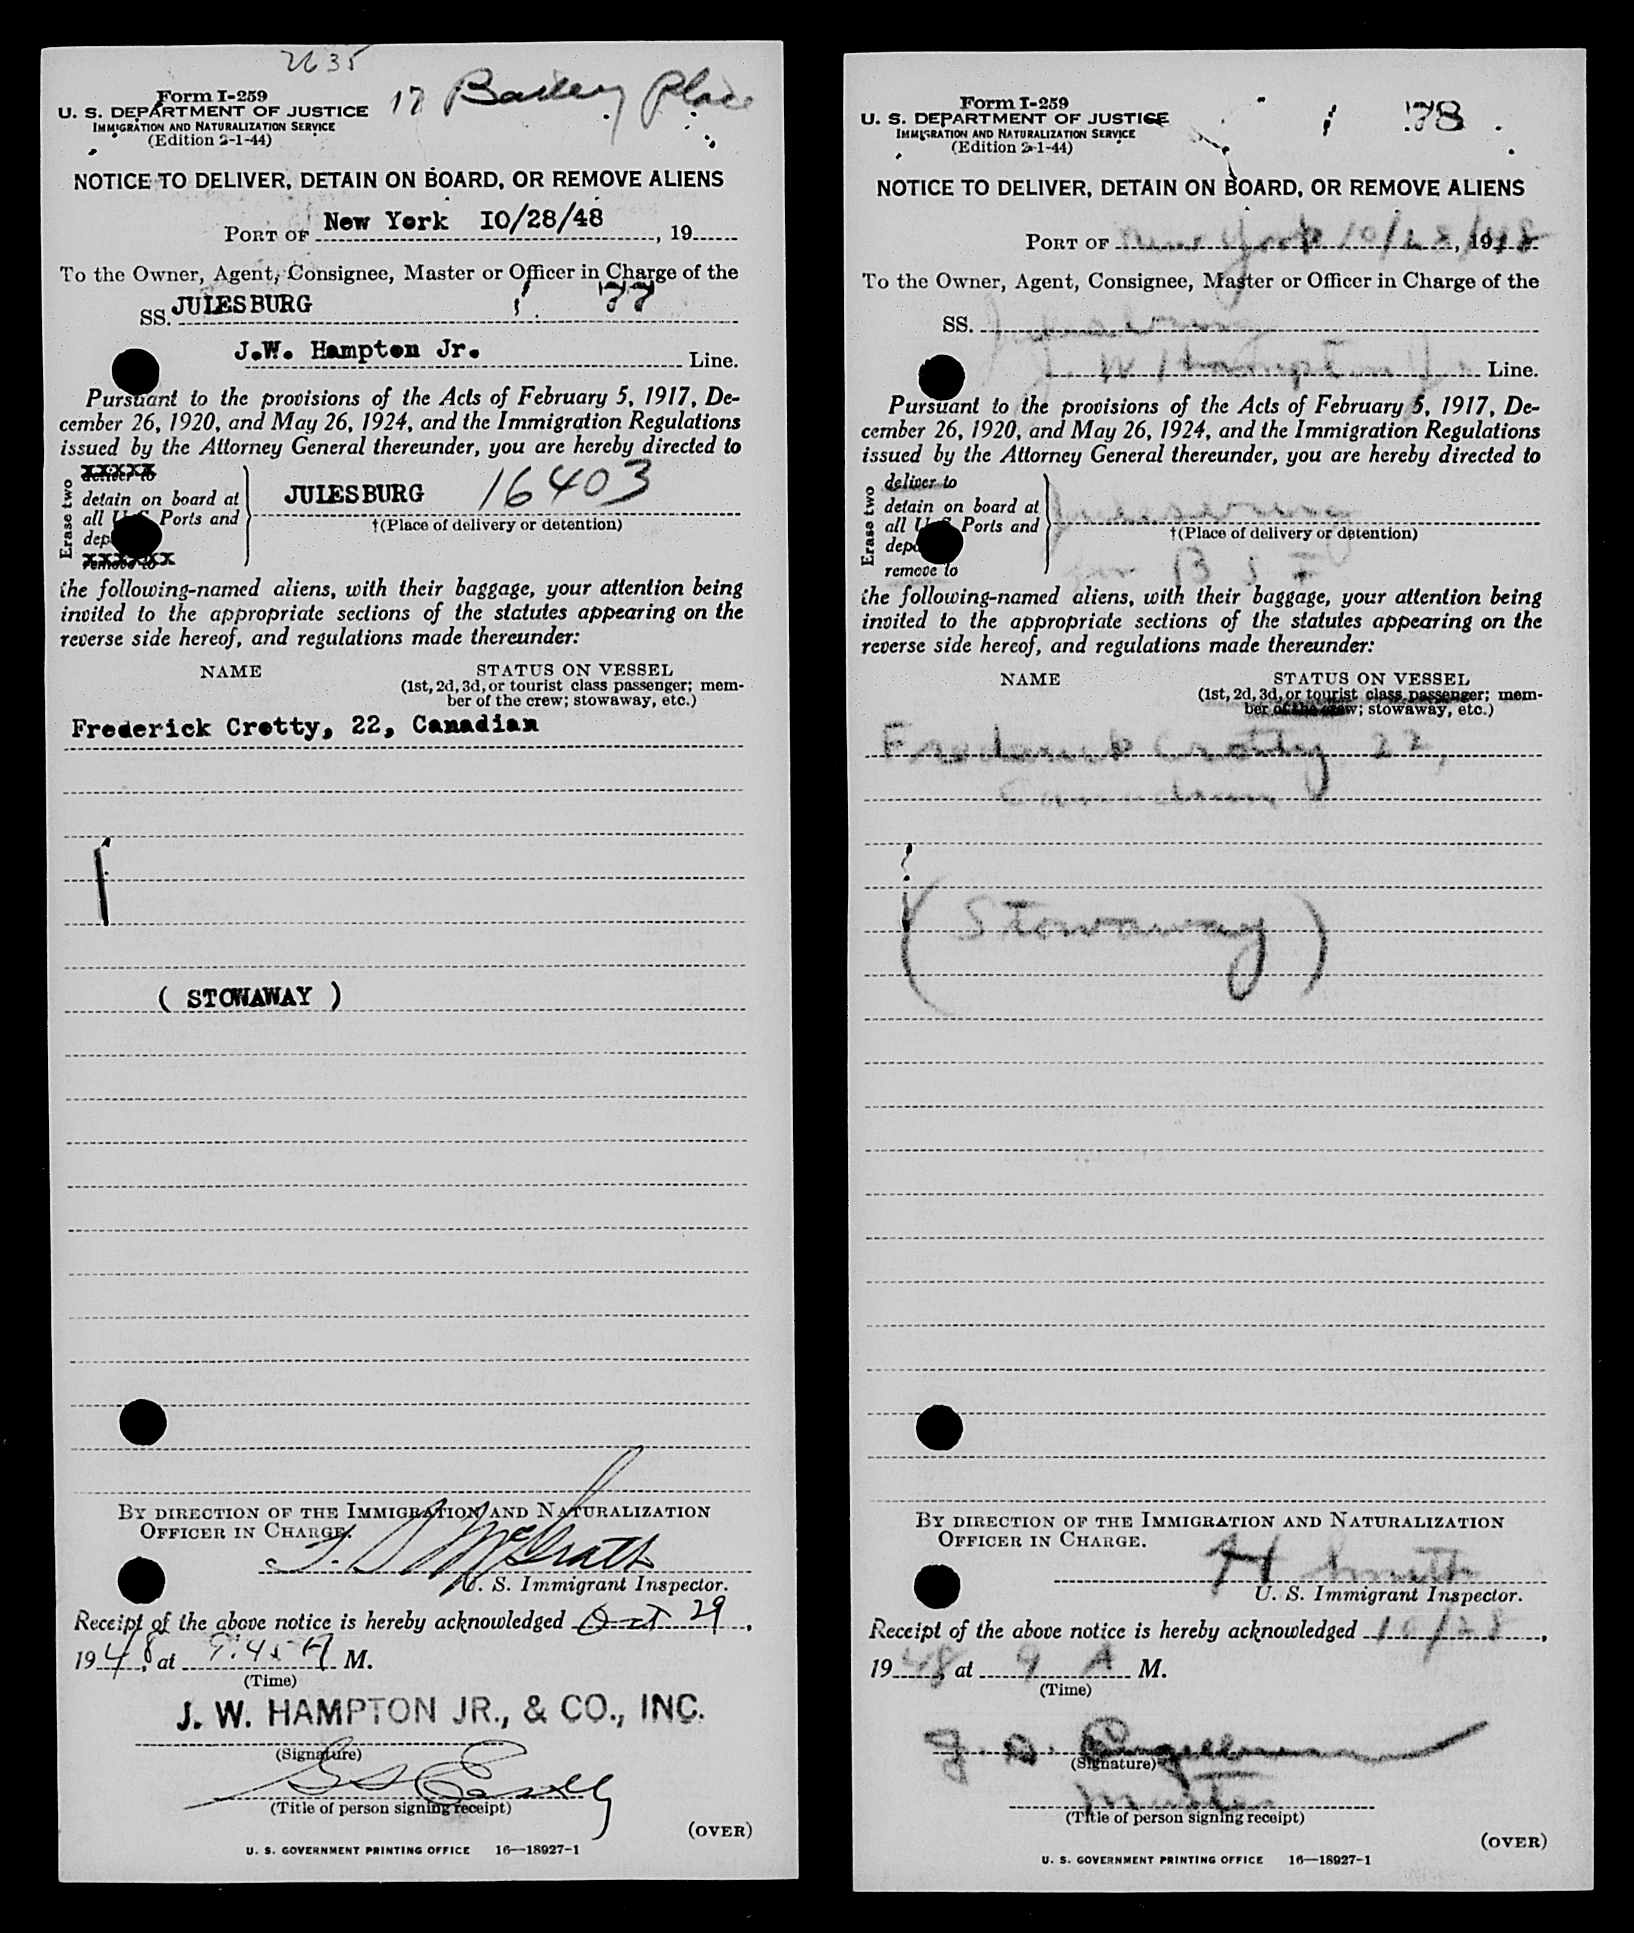 2635
17 Bailey Place
Form I-259
U. S. DEPARTMENT OF JUSTICE
IMMIGRATION AND NATURALIZATION SERVICE
(Edition 2-1-44)
NOTICE TO DELIVER, DETAIN ON BOARD, OR REMOVE ALIENS
PORT OF New York IO/28/48, 19
To the Owner, Agent, Consignee, Master or Officer in Charge of the
SS. JULESBURG 1 77
J.W. Hampton Jr. Line.
Pursuant to the provisions of the Acts of February 5, 1917, De-
cember 26, 1920, and May 26, 1924, and the Immigration Regulations
issued by the Attorney General thereunder, you are hereby directed to
Erase two
deliver to
detain on board at
all U. S. Ports and
dep
remove to
JULESBURG 16403
†(Place of delivery or detention)
the following-named aliens, with their baggage, your attention being
invited to the appropriate sections of the statutes appearing on the
reverse side hereof, and regulations made thereunder:
NAME STATUS ON VESSEL
(1st, 2d, 3d, or tourist class passenger; mem-
ber of the crew; stowaway, etc.)
Frederick Crotty, 22, Canadian
( STOWAWAY )
BY DIRECTION OF THE IMMIGRATION AND NATURALIZATION
OFFICER IN CHARGE.
McGrath
U. S. Immigrant Inspector.
Receipt of the above notice is hereby acknowledged Oct 29,
1948, at 9:45 A M.
(Time)
J. W. HAMPTON JR., & CO., INC.
(Signature)
(Title of person signing receipt)
(OVER)
U. S. GOVERNMENT PRINTING OFFICE 16—18927-1
Form I-259
U. S. DEPARTMENT OF JUSTICE
IMMIGRATION AND NATURALIZATION SERVICE
(Edition 2-1-44)
1 78
NOTICE TO DELIVER, DETAIN ON BOARD, OR REMOVE ALIENS
PORT OF New York 10/28/48, 1948
To the Owner, Agent, Consignee, Master or Officer in Charge of the
SS. Julesburg
J. W Hampton Jr Line.
Pursuant to the provisions of the Acts of February 5, 1917, De-
cember 26, 1920, and May 26, 1924, and the Immigration Regulations
issued by the Attorney General thereunder, you are hereby directed to
Erase two
deliver to
detain on board at
all U. S. Ports and
depo
remove to
Julesburg
†(Place of delivery or detention)
for B S I
the following-named aliens, with their baggage, your attention being
invited to the appropriate sections of the statutes appearing on the
reverse side hereof, and regulations made thereunder:
NAME STATUS ON VESSEL
(1st, 2d, 3d, or tourist class passenger; mem-
ber of the crew; stowaway, etc.)
Frederick Crotty 22,
Canadian
( Stowaway )
BY DIRECTION OF THE IMMIGRATION AND NATURALIZATION
OFFICER IN CHARGE.
H Smith
U. S. Immigrant Inspector.
Receipt of the above notice is hereby acknowledged 10/28,
1948, at 9 A M.
(Time)
(Signature)
Master
(Title of person signing receipt)
(OVER)
U. S. GOVERNMENT PRINTING OFFICE 16—18927-1